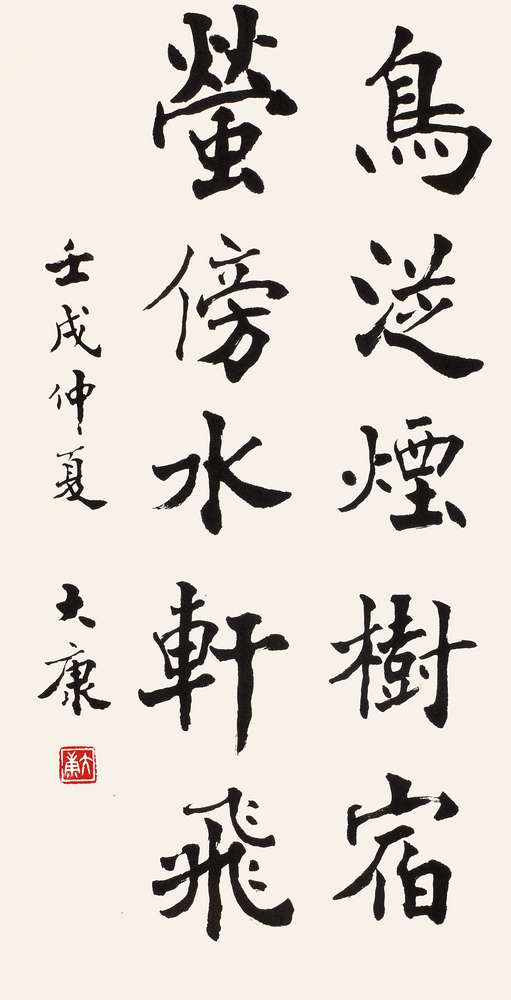 鳥從煙樹宿
螢傍水軒飛
壬戌仲夏 大康
大康